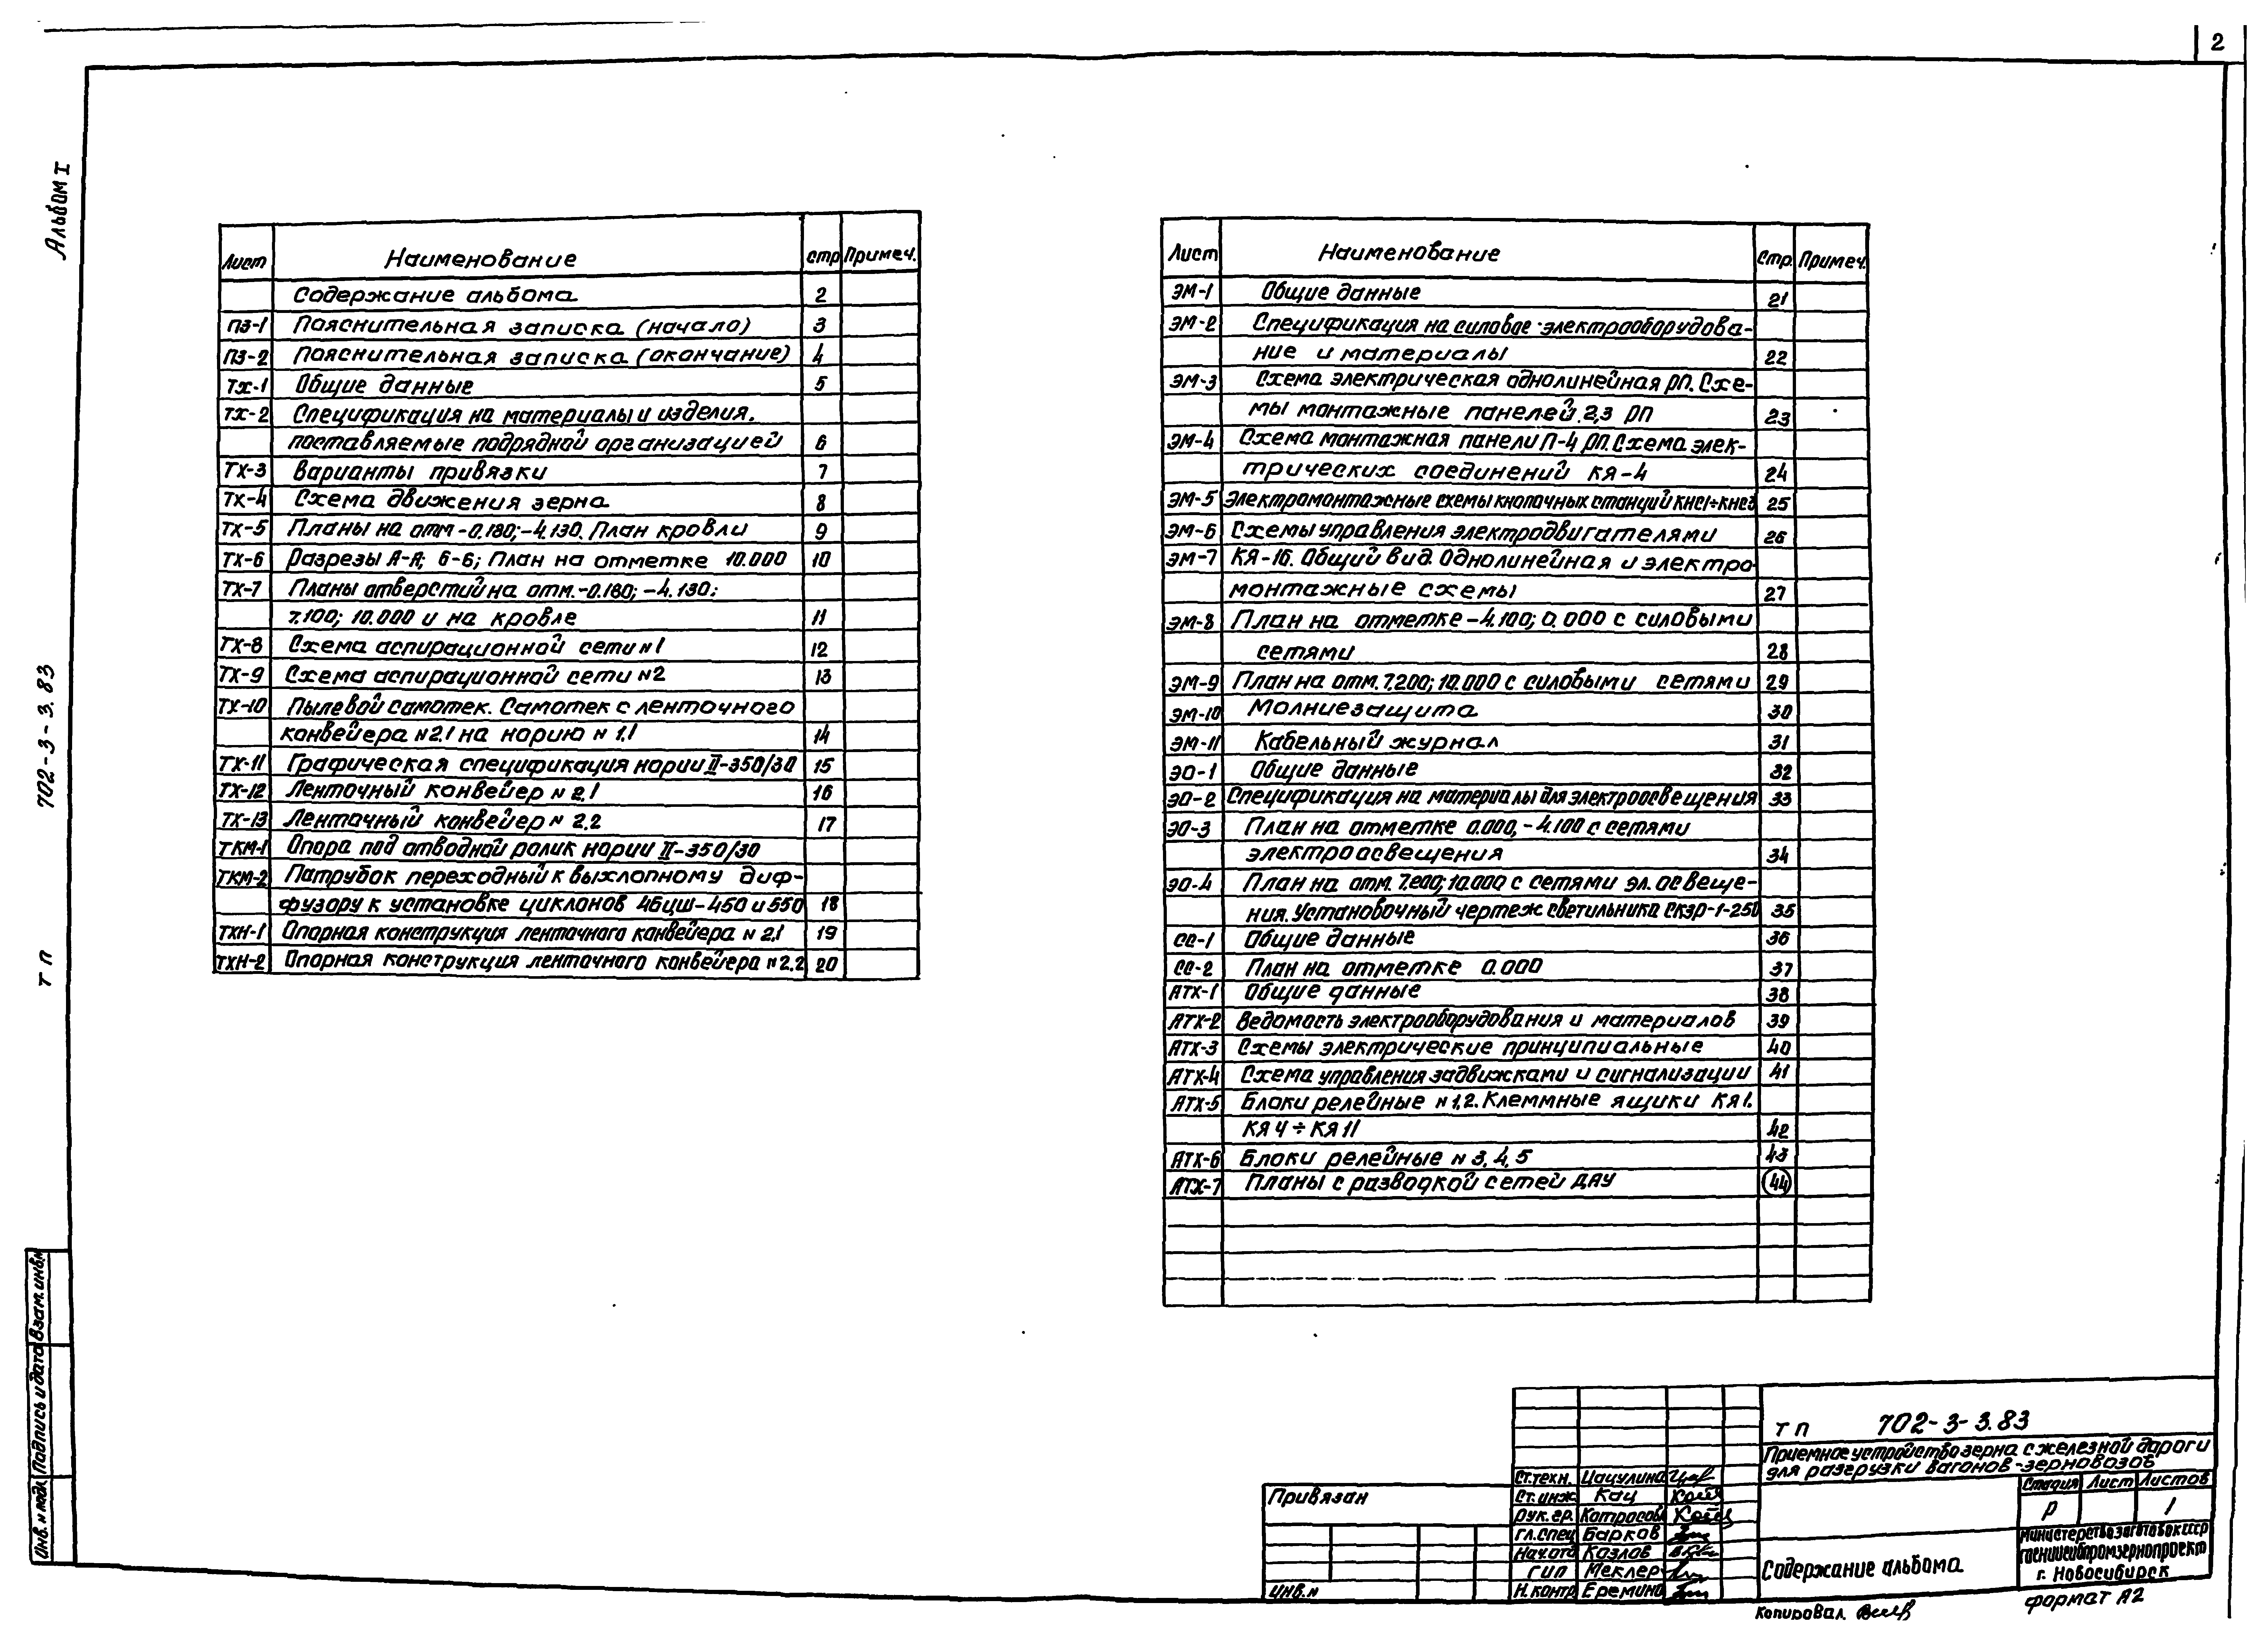 2
Альбом I
702-3-3.83
ТП
Лист Наименование стр Примеч.
Содержание альбома 2
ПЗ-1 Пояснительная записка (начало) 3
ПЗ-2 Пояснительная записка (окончание) 4
ТХ-1 Общие данные 5
ТХ-2 Спецификация на материалы и изделия,
поставляемые подрядной организацией 6
ТХ-3 Варианты привязки 7
ТХ-4 Схема движения зерна 8
ТХ-5 Планы на отм -0.180; -4.130. План кровли 9
ТХ-6 Разрезы А-А; Б-Б; План на отметке 10.000 10
ТХ-7 Планы отверстий на отм. -0.180; -4.130;
7.100; 10.000 и на кровле 11
ТХ-8 Схема аспирационной сети №1 12
ТХ-9 Схема аспирационной сети №2 13
ТХ-10 Пылевой самотек. Самотек с ленточного
конвейера №2.1 на норию №1.1 14
ТХ-11 Графическая спецификация нории II-350/30 15
ТХ-12 Ленточный конвейер №2.1 16
ТХ-13 Ленточный конвейер №2.2 17
ТКМ-1 Опора под отводной ролик нории II-350/30
ТКМ-2 Патрубок переходный к выхлопному диф-
фузору к установке циклонов 4БЦШ-450 и 550 18
ТХН-1 Опорная конструкция ленточного конвейера №2.1 19
ТХН-2 Опорная конструкция ленточного конвейера №2.2 20
Лист Наименование Стр. Примеч.
ЭМ-1 Общие данные 21
ЭМ-2 Спецификация на силовое электрооборудова-
ние и материалы 22
ЭМ-3 Схема электрическая однолинейная РП. Схе-
мы монтажные панелей 2,3 РП 23
ЭМ-4 Схема монтажная панели П-4 РП. Схема элек-
трических соединений КЯ-4 24
ЭМ-5 Электромонтажные схемы кнопочных станций КНС1÷КНС3 25
ЭМ-6 Схемы управления электродвигателями 26
ЭМ-7 КЯ-16. Общий вид. Однолинейная и электро-
монтажные схемы 27
ЭМ-8 План на отметке -4.100; 0.000 с силовыми
сетями 28
ЭМ-9 План на отм. 7.200; 10.000 с силовыми сетями 29
ЭМ-10 Молниезащита 30
ЭМ-11 Кабельный журнал 31
ЭО-1 Общие данные 32
ЭО-2 Спецификация на материалы для электроосвещения 33
ЭО-3 План на отметке 0.000, -4.100 с сетями
электроосвещения 34
ЭО-4 План на отм. 7.200; 10.000 с сетями эл. освеще-
ния. Установочный чертеж светильника СКЗР-1-250 35
СС-1 Общие данные 36
СС-2 План на отметке 0.000 37
АТХ-1 Общие данные 38
АТХ-2 Ведомость электрооборудования и материалов 39
АТХ-3 Схемы электрические принципиальные 40
АТХ-4 Схема управления задвижками и сигнализации 41
АТХ-5 Блоки релейные №1,2. Клеммные ящики КЯ1.
КЯ4÷КЯ11 42
АТХ-6 Блоки релейные №3,4,5 43
АТХ-7 Планы с разводкой сетей ДАУ 44
Инв. № подл. Подпись и дата Взам. инв.№
Привязан
Инв.№
Ст.техн. Цацулина
Ст.инж Кац
Рук.гр. Котрасов
Гл.спец Барков
Нач.отд Козлов
ГИП Меклер
Н.контр Еремина
ТП 702-3-3.83
Приемное устройство зерна с железной дороги
для разгрузки вагонов-зерновозов
Стадия Лист Листов
Р 1
Содержание альбома
Министерство заготовок СССР
ГОСНИИСИБПРОМЗЕРНОПРОЕКТ
г. Новосибирск
Копировал
Формат А2